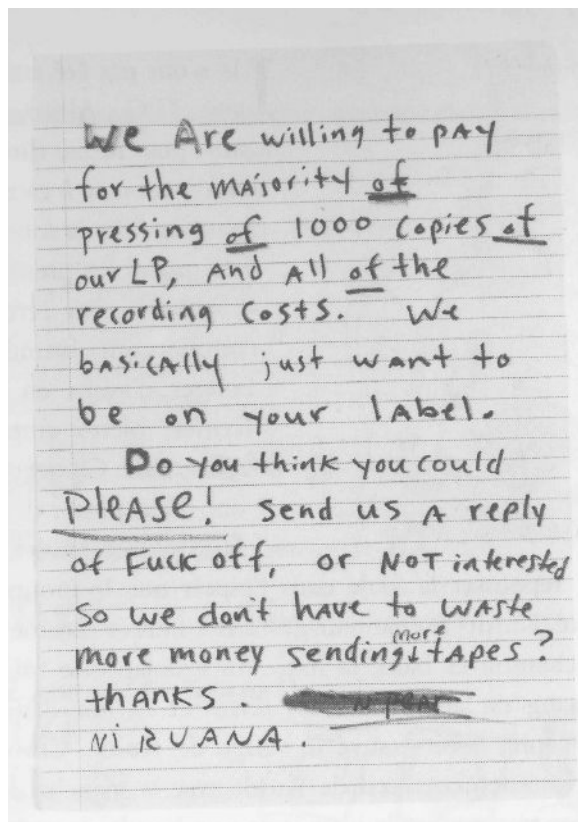 We Are willing to pay
for the majority of
pressing of 1000 copies of
our LP, And All of the
recording costs. We
basically just want to
be on your label.
Do you think you could
please! send us a reply
of Fuck off, or NOT interested
so we don't have to waste
more money sending more tapes?
thanks.
NIRVANA.